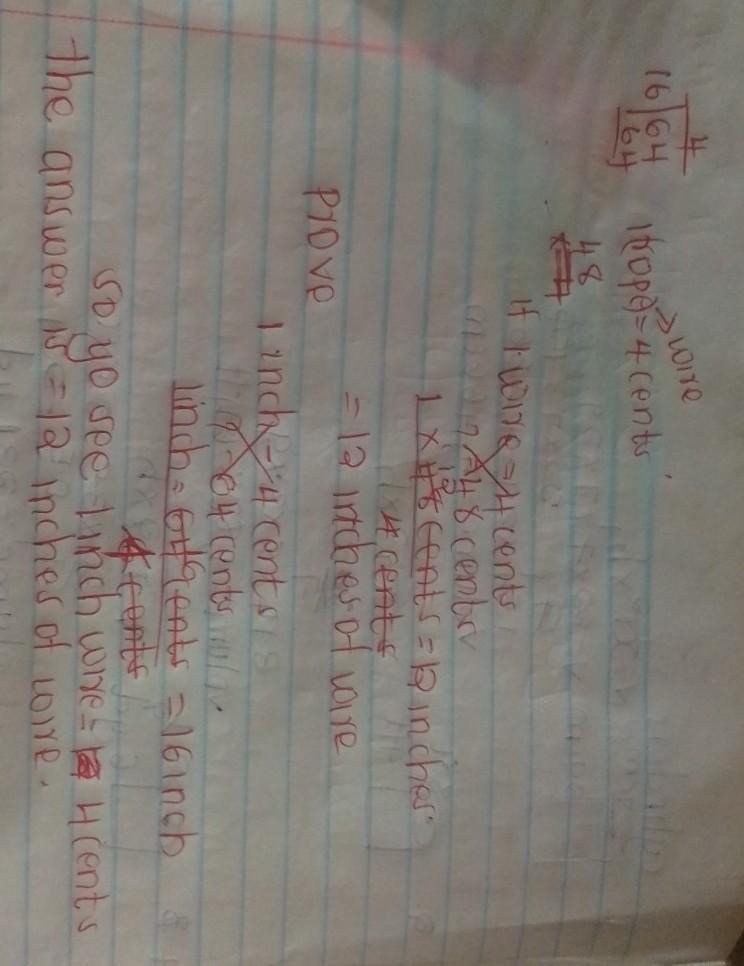 4
16 64
64
1(rope) = 4 cents
> wire
48
If 1 wire = 4 cents
? = 48 cents
1 × 48 cents = 12 inches
12
4 cents
= 12 inches of wire
Prove
1 inch - 4 cents
? - 64 cents
1inch = 64 cents = 16 inch
16
4 cents
so yo see 1 inch wire = 4 cents
the answer is = 12 inches of wire.